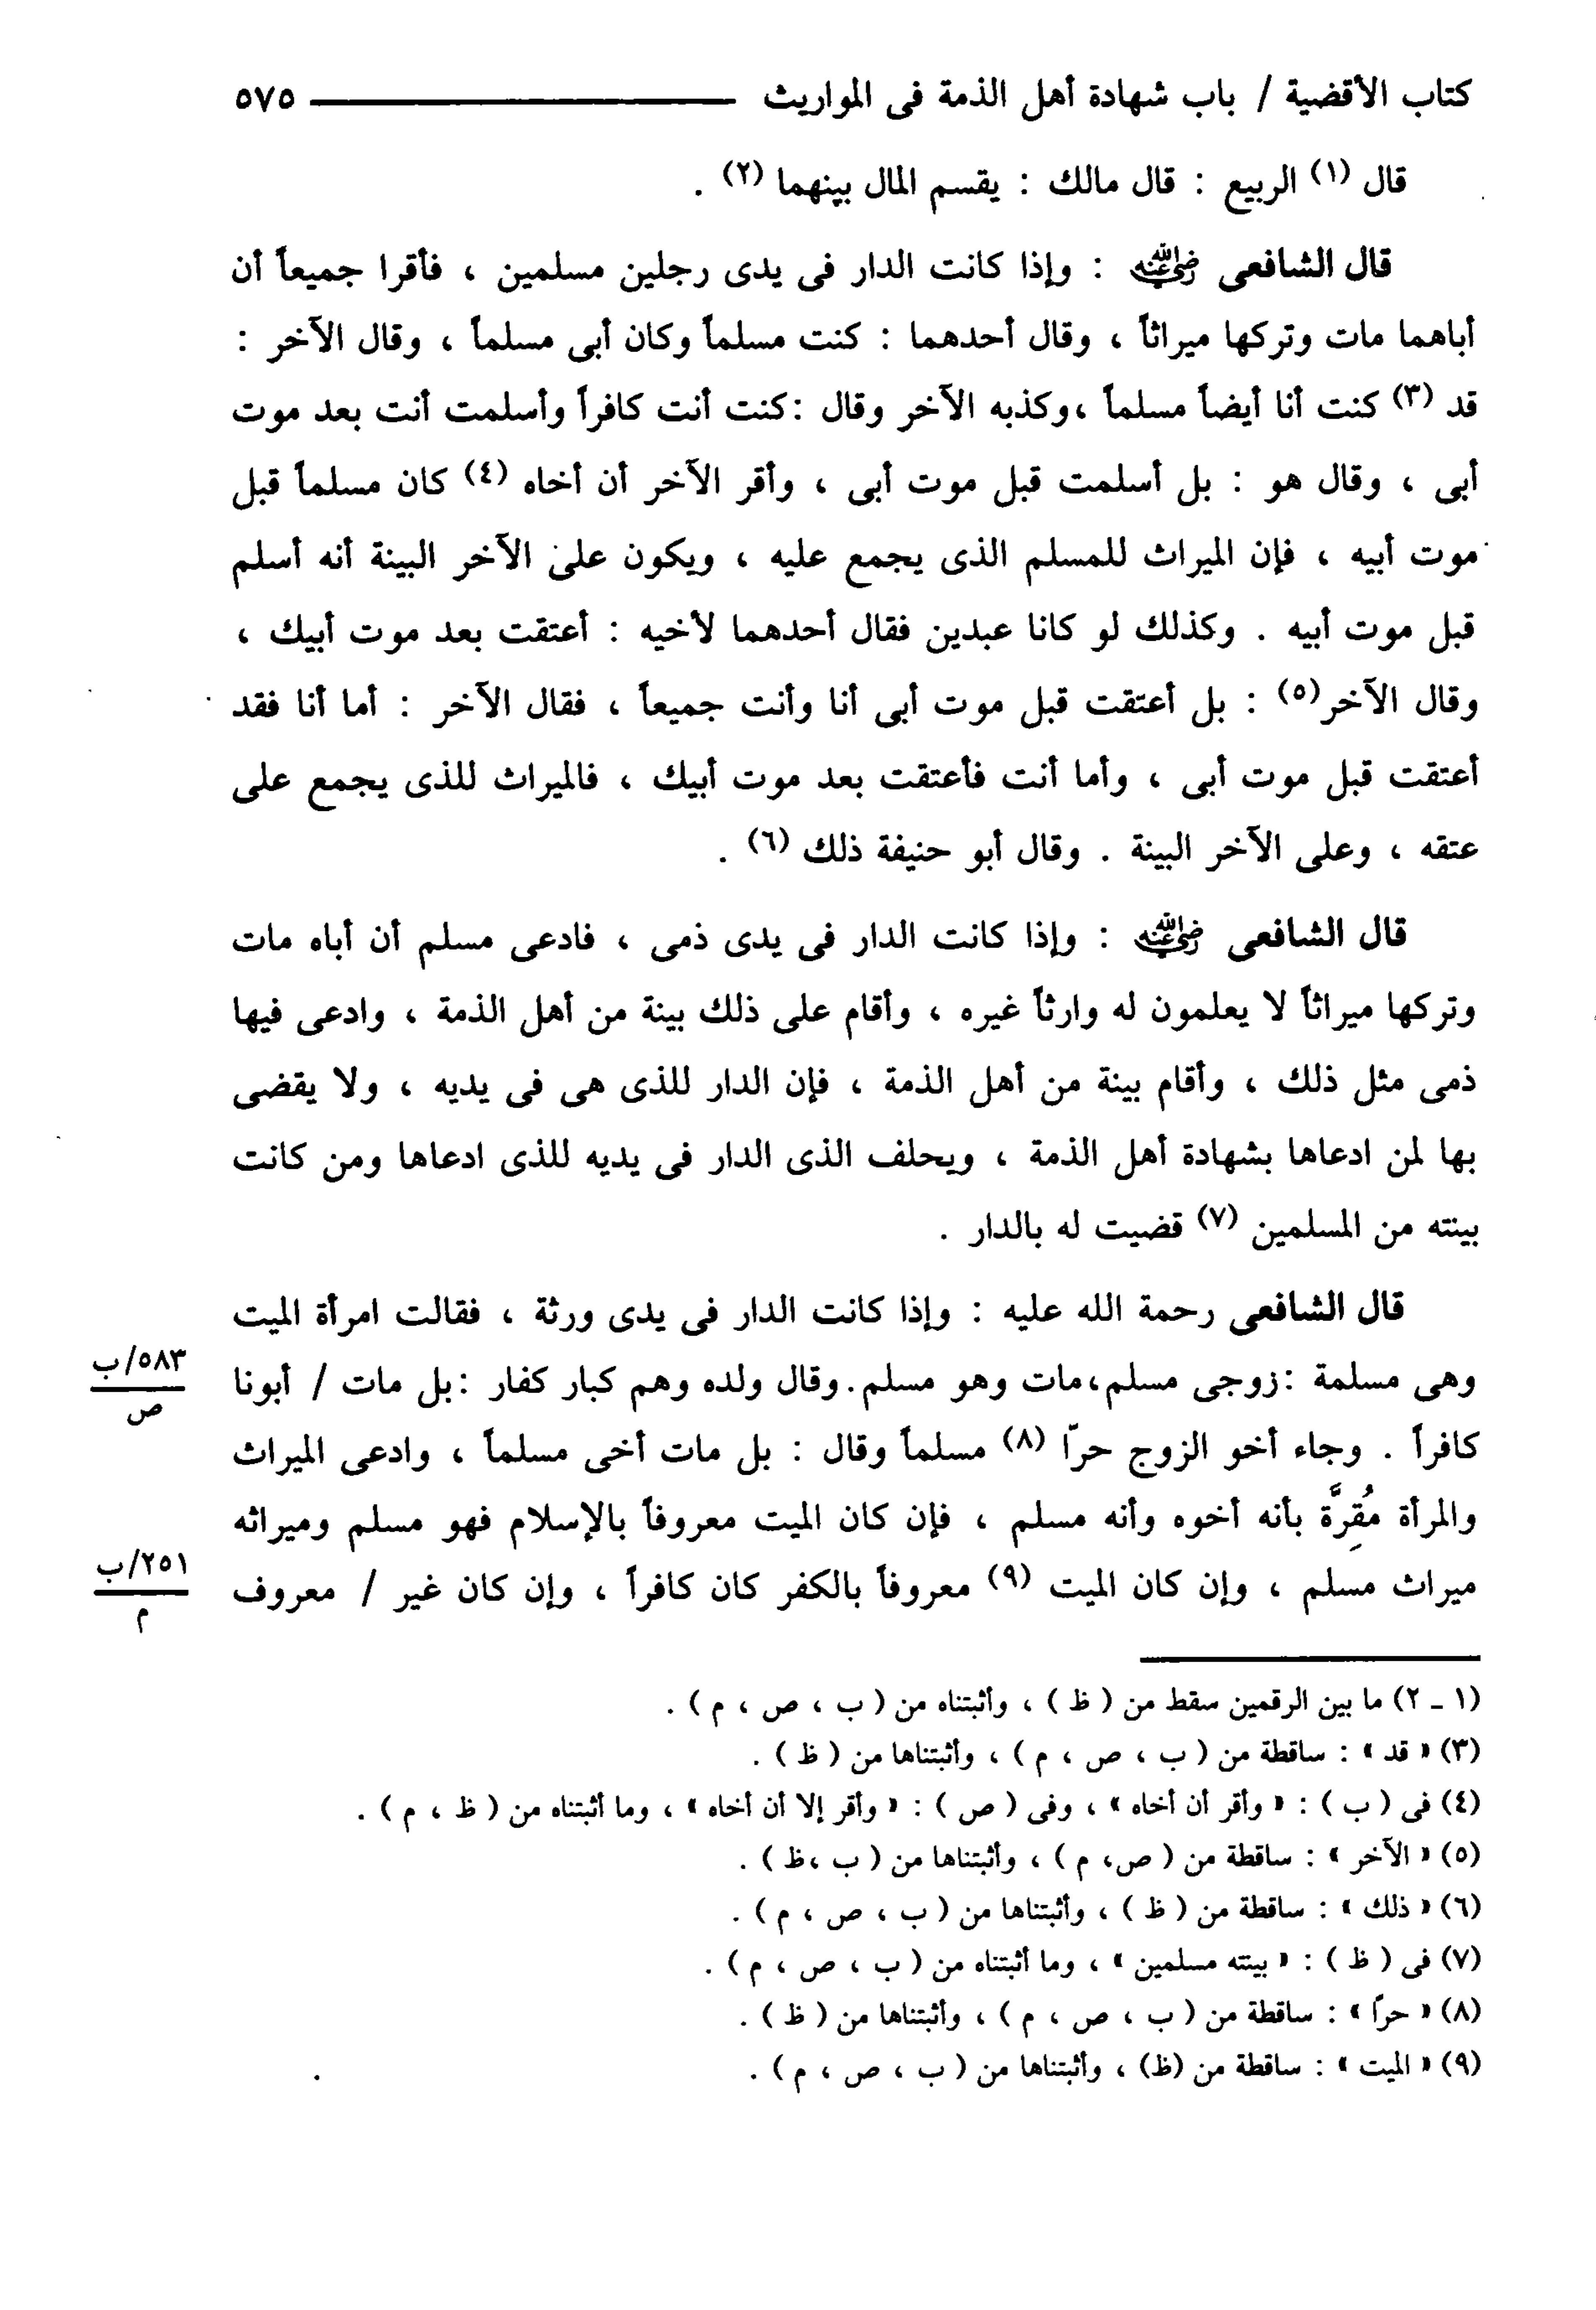 كتاب الأقضية / باب شهادة أهل الذمة فى المواريث ــــــــــــــ ٥٧٥
قال (١) الربيع : قال مالك : يقسم المال بينهما (٢) .
قال الشافعى رضي الله عنه : وإذا كانت الدار فى يدى رجلين مسلمين ، فأقرا جميعاً أن
أباهما مات وتركها ميراثاً ، وقال أحدهما : كنت مسلماً وكان أبى مسلماً ، وقال الآخر :
قد (٣) كنت أنا أيضاً مسلماً ،وكذبه الآخر وقال :كنت أنت كافراً وأسلمت أنت بعد موت
أبى ، وقال هو : بل أسلمت قبل موت أبى ، وأقر الآخر أن أخاه (٤) كان مسلماً قبل
موت أبيه ، فإن الميراث للمسلم الذى يجمع عليه ، ويكون على الآخر البينة أنه أسلم
قبل موت أبيه . وكذلك لو كانا عبدين فقال أحدهما لأخيه : أعتقت بعد موت أبيك ،
وقال الآخر(٥) : بل أعتقت قبل موت أبى أنا وأنت جميعاً ، فقال الآخر : أما أنا فقد
أعتقت قبل موت أبى ، وأما أنت فأعتقت بعد موت أبيك ، فالميراث للذى يجمع على
عتقه ، وعلى الآخر البينة . وقال أبو حنيفة ذلك (٦) .
قال الشافعى رضي الله عنه : وإذا كانت الدار فى يدى ذمى ، فادعى مسلم أن أباه مات
وتركها ميراثاً لا يعلمون له وارثاً غيره ، وأقام على ذلك بينة من أهل الذمة ، وادعى فيها
ذمى مثل ذلك ، وأقام بينة من أهل الذمة ، فإن الدار للذى هى فى يديه ، ولا يقضى
بها لمن ادعاها بشهادة أهل الذمة ، ويحلف الذى الدار فى يديه للذى ادعاها ومن كانت
بينته من المسلمين (٧) قضيت له بالدار .
قال الشافعى رحمة الله عليه : وإذا كانت الدار فى يدى ورثة ، فقالت امرأة الميت
وهى مسلمة :زوجى مسلم،مات وهو مسلم.وقال ولده وهم كبار كفار :بل مات / أبونا
٥٨٣/ب
ص
كافراً . وجاء أخو الزوج حرّا (٨) مسلماً وقال : بل مات أخى مسلماً ، وادعى الميراث
والمرأة مُقِرَّة بأنه أخوه وأنه مسلم ، فإن كان الميت معروفاً بالإسلام فهو مسلم وميراثه
ميراث مسلم ، وإن كان الميت (٩) معروفاً بالكفر كان كافراً ، وإن كان غير / معروف
٢٥١/ب
م
(١ - ٢) ما بين الرقمين سقط من ( ظ ) ، وأثبتناه من ( ب ، ص ، م ) .
(٣) « قد » : ساقطة من ( ب ، ص ، م ) ، وأثبتناها من ( ظ ) .
(٤) فى ( ب ) : « وأقر أن أخاه » ، وفى ( ص ) : « وأقر إلا أن أخاه » ، وما أثبتناه من ( ظ ، م ) .
(٥) « الآخر » : ساقطة من ( ص، م ) ، وأثبتناها من ( ب ،ظ ) .
(٦) « ذلك » : ساقطة من ( ظ ) ، وأثبتناها من ( ب ، ص ، م ) .
(٧) فى ( ظ ) : « بينته مسلمين » ، وما أثبتناه من ( ب ، ص ، م ) .
(٨) « حراً » : ساقطة من ( ب ، ص ، م ) ، وأثبتناها من ( ظ ) .
(٩) « الميت » : ساقطة من (ظ) ، وأثبتناها من ( ب ، ص ، م ) .